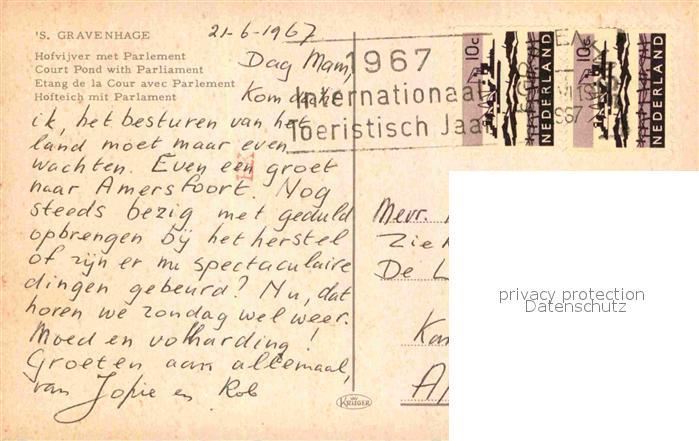 'S. GRAVENHAGE
Hofvijver met Parlement
Court Pond with Parliament
Etang de la Cour avec Parlement
Hofteich mit Parlament
21-6-1967
Dag Mam,
Kom dacht
ik, het besturen van het
land moet maar even
wachten. Even een groet
naar Amersfoort. Nog
steeds bezig met geduld
opbrengen bij het herstel
of zijn er nu spectaculaire
dingen gebeurd? Nu, dat
horen we zondag wel weer.
Moed en volharding!
Groeten aan allemaal,
van Jopie en Rob
1967
Internationaal
Toeristisch Jaar
10c
NEDERLAND
10c
NEDERLAND
Mevr.
Zie
De L
Ka
A
privacy protection
Datenschutz
KRUGER